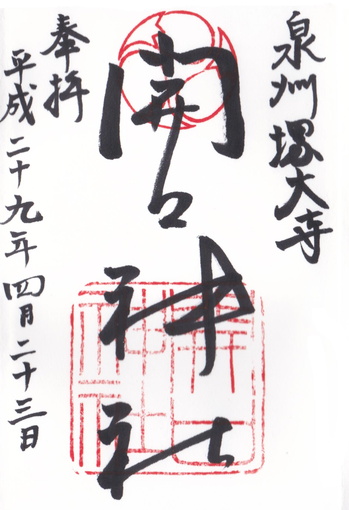 泉州堺大寺
開口神社
奉拝
平成二十九年四月二十三日
開口神社